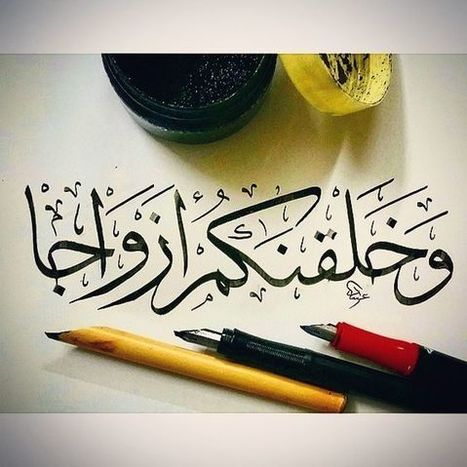 وَخَلَقنَكُم أَزوَاجًا